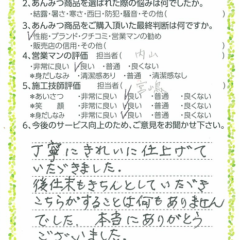 2.あんみつ商品を選ばれた際の悩みは何でしたか。
・結露・暑さ・寒さ・西日・防犯・騒音・その他( )
3.あんみつ商品をご購入頂いた最終判断は何ですか。
・性能・ブランド・クチコミ・営業マンの勧め
・販売店の信用・その他( )
4.営業マンの評価 担当者( 内山 )
・非常に良い ・良い ・普通 ・良くない
*身だしなみ ・清潔感あり ・普通 ・清潔感なし
5.施工技師評価 担当者( )
*あいさつ ・非常に良い ・良い ・普通 ・良くない
*笑 顔 ・非常に良い ・良い ・普通 ・良くない
*身だしなみ ・非常に良い ・良い ・普通 ・良くない
6.今後のサービス向上のため、ご意見をお聞かせ下さい。
丁寧にきれいに仕上げて
いただきました。
後仕末もきちんとしていただき
こちらがすることは何もありません
でした。本当にありがとう
ございました。